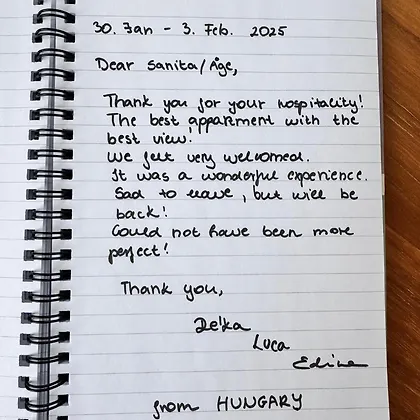 30. Jan - 3. Feb. 2025
Dear Sanita/Åge,
Thank you for your hospitality!
The best appartment with the
best view!
We felt very welcomed.
It was a wonderful experience.
Sad to leave, but will be
back!
Could not have been more
perfect!
Thank you,
Luca
Edina
from HUNGARY